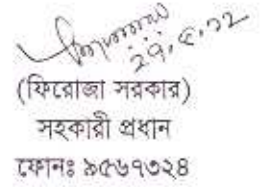 ২৭.৫.১২
(ফিরোজা সরকার)
সহকারী প্রধান
ফোনঃ ৯৫৬৭৩২৪